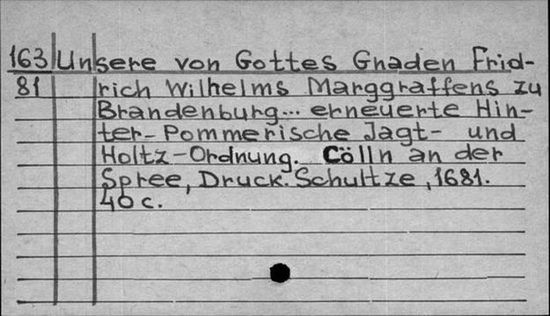 163 Unsere von Gottes Gnaden Frid-
81 rich Wilhelms Marggraffens zu
Brandenburg... erneuerte Hin-
ter-Pommerische Jagt- und
Holtz-Ordnung. Cölln an der
Spree, Druck. Schultze, 1681.
40 c.